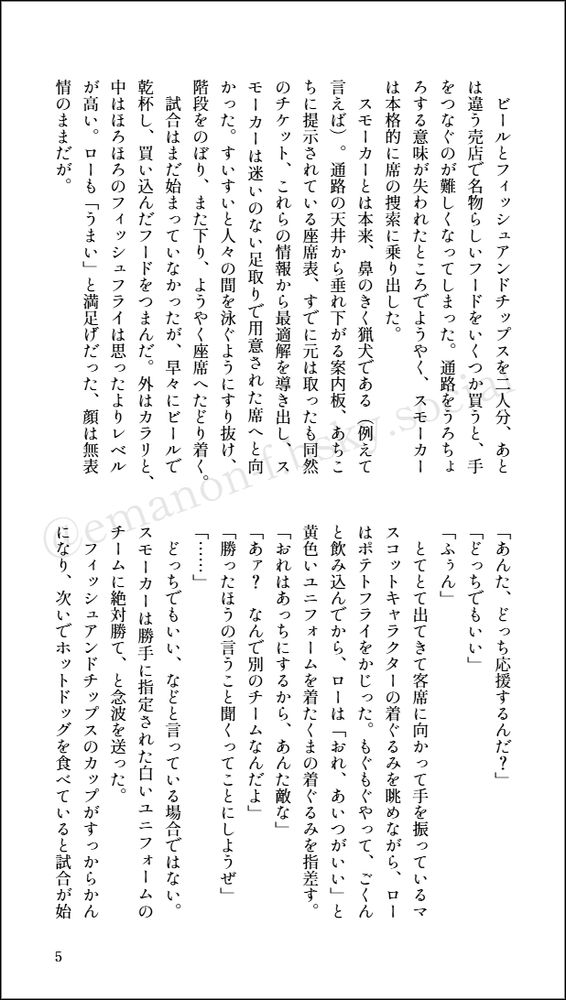 ビールとフィッシュアンドチップスを二人分、あと
は違う売店で名物らしいフードをいくつか買うと、手
をつなぐのが難しくなってしまった。通路をうろちょ
ろする意味が失われたところでようやく、スモーカー
は本格的に席の捜索に乗り出した。
スモーカーとは本来、鼻のきく猟犬である（例えて
言えば）。通路の天井から垂れ下がる案内板、あちこ
ちに提示されている座席表、すでに元は取ったも同然
のチケット、これらの情報から最適解を導き出し、ス
モーカーは迷いのない足取りで用意された席へと向
かった。すいすいと人々の間を泳ぐようにすり抜け、
階段をのぼり、また下り、ようやく座席へたどり着く。
試合はまだ始まっていなかったが、早々にビールで
乾杯し、買い込んだフードをつまんだ。外はカラリと、
中はほろほろのフィッシュフライは思ったよりレベル
が高い。ローも「うまい」と満足げだった、顔は無表
情のままだが。
「あんた、どっち応援するんだ？」
「どっちでもいい」
「ふぅん」
とてとて出てきて客席に向かって手を振っているマ
スコットキャラクターの着ぐるみを眺めながら、ロー
はポテトフライをかじった。もぐもぐやって、ごくん
と飲み込んでから、ローは「おれ、あいつがいい」と
黄色いユニフォームを着たくまの着ぐるみを指差す。
「おれはあっちにするから、あんた敵な」
「あァ？　なんで別のチームなんだよ」
「勝ったほうの言うこと聞くってことにしようぜ」
「……」
どっちでもいい、などと言っている場合ではない。
スモーカーは勝手に指定された白いユニフォームの
チームに絶対勝て、と念波を送った。
フィッシュアンドチップスのカップがすっからかん
になり、次いでホットドッグを食べていると試合が始
5
@emanon-f.bsky.social